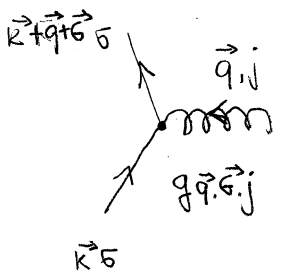 k⃗+q⃗+G⃗ σ
q⃗,j
g q⃗,G⃗,j
k⃗ σ